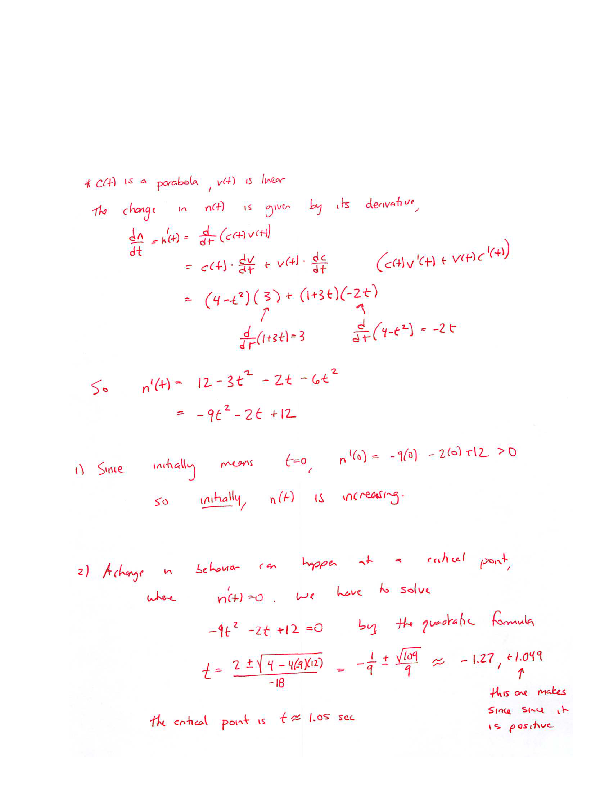 * c(t) is a parabola, v(t) is linear
The change in n(t) is given by its derivative,
dn/dt = n'(t) = d/dt (c(t)v(t))
= c(t) · dv/dt + v(t) · dc/dt (c(t)v'(t) + v(t)c'(t))
= (4-t²)(3) + (1+3t)(-2t)
↑ ↑
d/dt(1+3t)=3 d/dt(4-t²) = -2t
So n'(t) = 12 - 3t² - 2t - 6t²
= -9t² - 2t + 12
1) Since initially means t=0, n'(0) = -9(0) - 2(0)+12 > 0
so initially, n(t) is increasing.
2) A change in behavior can happen at a critical point,
where n'(t)=0. We have to solve
-9t² - 2t + 12 = 0 by the quadratic formula
t = 2 ± √4 - 4(9)(12) / -18 = -1/9 ± √109/9 ≈ -1.27, +1.049
↑
this one makes
since since it
is positive
the critical point is t ≈ 1.05 sec